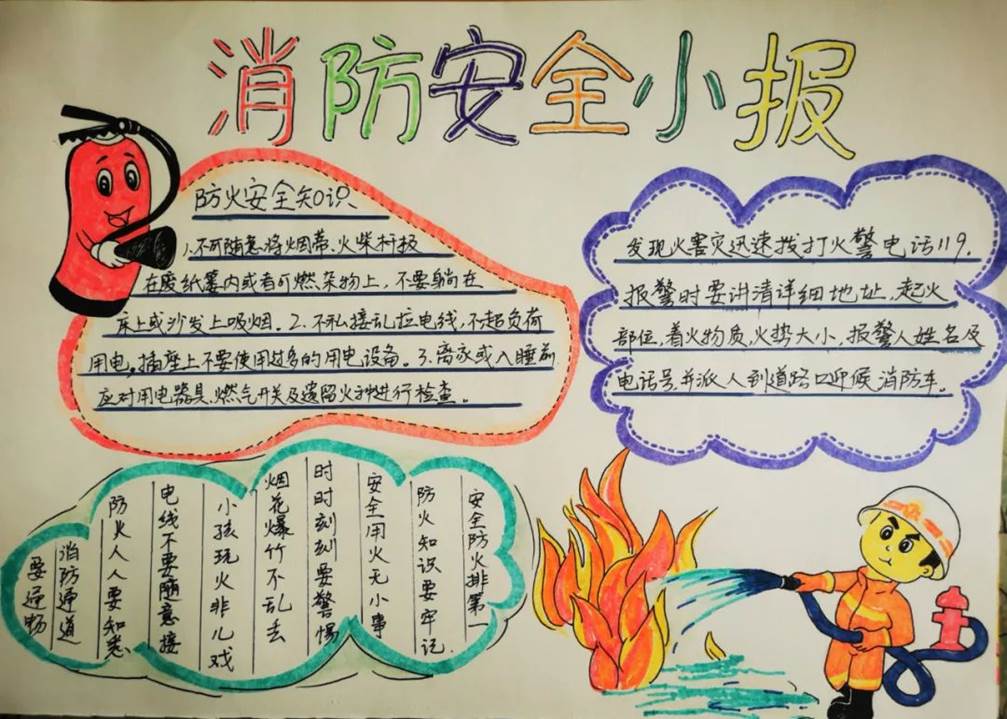 消防安全小报
防火安全知识
1.不可随意将烟蒂、火柴杆扔
在废纸篓内或者可燃杂物上，不要躺在
床上或沙发上吸烟。2.不私接乱拉电线，不超负荷
用电，插座上不要使用过多的用电设备。3.离家或入睡前
应对用电器具、燃气开关及遗留火种进行检查。
发现火害灾迅速拨打火警电话119.
报警时要讲清详细地址，起火
部位，着火物质，火势大小，报警人姓名及
电话号，并派人到道路口迎候消防车。
安全防火排第一
防火知识要牢记.
安全用火无小事
时时刻刻要警惕
烟花爆竹不乱丢
小孩玩火非儿戏
电线不要随意接
防火人人要知悉
消防通道
要通畅